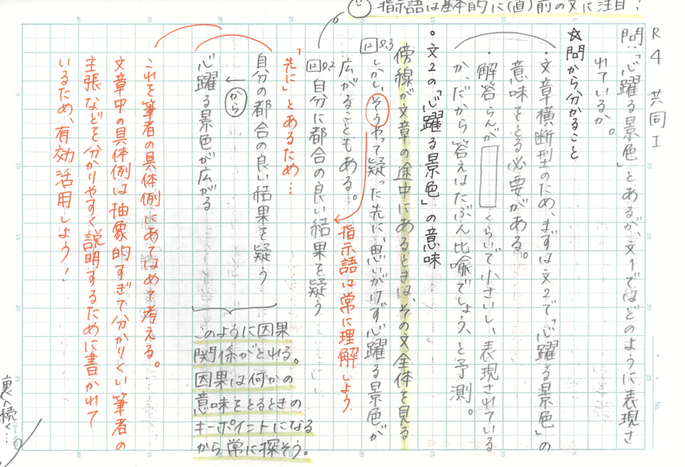 指示語は基本的に(直)前の文に注目！
R4 共同I
問…「心躍る景色」とあるが、文1ではどのように表現さ
れているか。
☆問から分かること
・文章横断型のため、まずは文2で「心躍る景色」の
意味をとる必要がある。
・解答らんが　　くらいで小さいし、表現されている
か、だから答えはたぶん比喩でしょう、と予測。
○文2の「心躍る景色」の意味
傍線が文章の途中にあるときは、その文全体を見る
しかし、そうやって疑った先に、思いがけず心躍る景色が
広がることもある。
指示語は常に理解しよう
自分に都合の良い結果を疑う
「先に」とあるため…
自分の都合の良い結果を疑う
から
心躍る景色が広がる
このように因果
関係がとれる。
因果は何かの
意味をとるときの
キーポイントになる
から常に探そう。
これを筆者の具体例にあてはめて考える。
文章中の具体例は抽象的すぎて分かりにくい筆者の
主張などを分かりやすく説明するために書かれて
いるため、有効活用しよう！
裏へ続く…